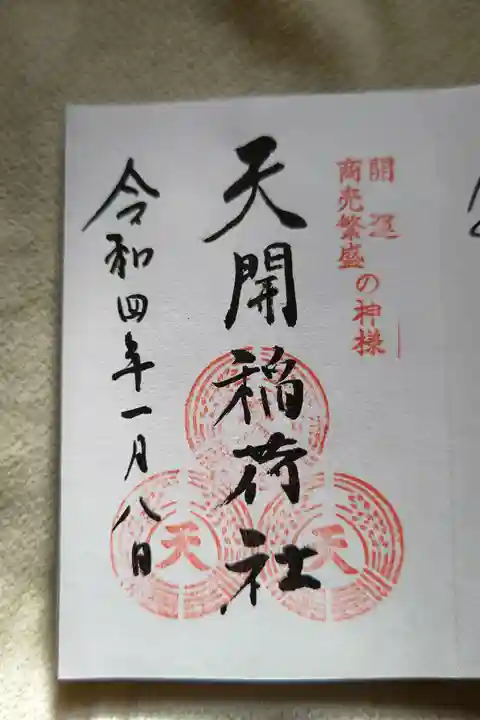 開運
商売繁盛の神様
天開稲荷社
天
天
令和四年一月八日